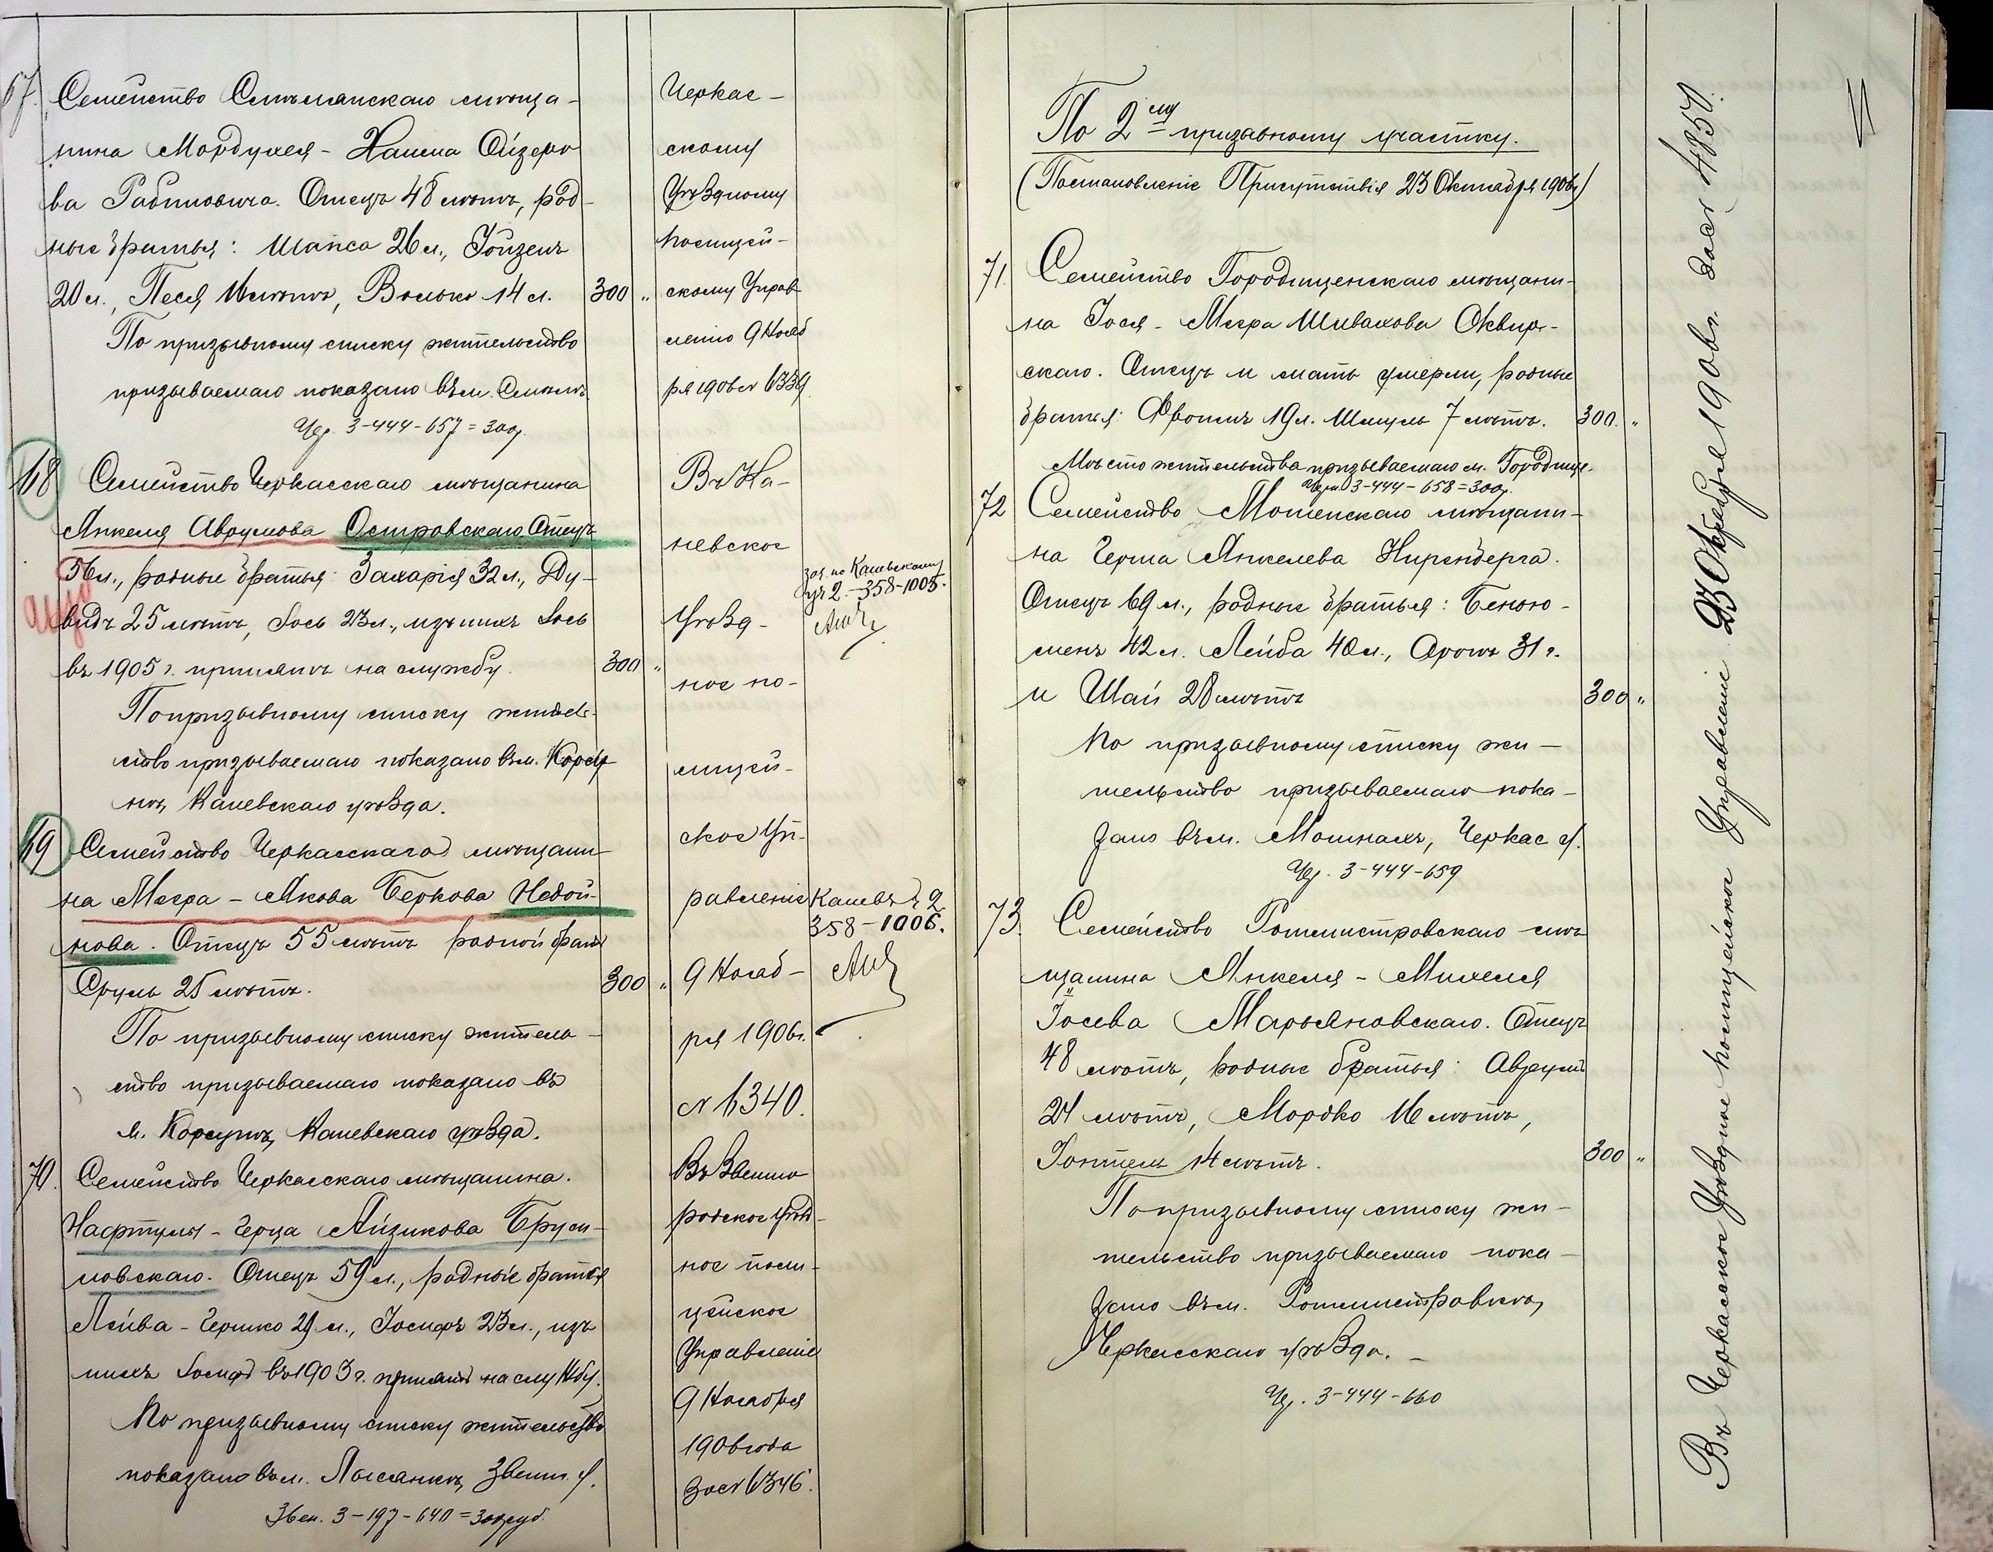 67. Семейство Смѣлянскаго мѣща-
нина Мордухея - Хаима Айзеро
ва Рабиновича. Отецъ 48 лѣтъ, род-
ные братья: Шапса 26 л., Іойзелъ
20 л., Песя 16 лѣтъ, Волько 14 л. 300 "
По призывному списку жительство
призываемаго показано въ м. Смѣлѣ
Чер. 3-444-657=300 р.
Черкас-
скому
Уѣздному
полицей-
скому Управ
ленію 9 Нояб
ря 1906 № 6339
68 Семейство Черкасскаго мѣщанина
Янкеля Аврумова Островскаго. Отецъ
56 л., родные братья: Захарія 32 л., Ду-
видъ 25 лѣтъ, Іось 23 л., изъ нихъ Іось
въ 1905 г. принятъ на службу. 300 "
По призывному списку житель-
ство призываемаго показано въ м. Корсу
нѣ, Каневскаго уѣзда.
69 Семейство Черкасскаго мѣщани-
на Меера - Якова Беркова Недой-
нова. Отецъ 55 лѣтъ родной братъ
Сруль 25 лѣтъ. 300 "
По призывному списку житель-
ство призываемаго показано въ
м. Корсунѣ, Каневскаго уѣзда.
Въ Ка-
невское
Уѣзд-
ное по-
лицей-
ское Уп-
равленіе
9 Нояб-
ря 1906 г.
№ 6340.
по Каневскому
уч 2. - 358-1005.
Каневъ ч 2
358-1006.
70. Семейство Черкасскаго мѣщанина.
Нафтулы - Герца Айзикова Бруси-
ловскаго. Отецъ 59 л., родные братья
Лейва - Гершко 29 л., Іосифъ 23 л., изъ
нихъ Іосифъ въ 1903 г. принятъ на службу.
По призывному списку жительство
показано въ м. Лысянкѣ, Звени. у.
Звен. 3-197-640=300 руб
Въ Звениго
родское Уѣзд-
ное поли-
цейское
Управленіе
9 Ноября
1906 года
за № 6346.
По 2му призывному участку.
(Постановленіе Присутствія 23 Октября 1906 г)
71. Семейство Городищенскаго мѣщани-
на Іося - Меера Шивахова Сквир-
скаго. Отецъ и мать умерли, родные
братья: Фроимъ 19 л. Шмуль 7 лѣтъ. 300. "
Мѣсто жительства призываемаго м. Городище.
Черк. 3-444-658=300 р.
72 Семейство Мошенскаго мѣщани-
на Герша Янкелева Ниренберга.
Отецъ 69 л., родные братья: Беньью-
менъ 42 л. Лейба 40 л., Аронъ 31 г.
и Шай 28 лѣтъ 300 "
По призывному списку жи-
тельство призываемаго пока-
зано въ м. Мошнахъ, Черкас у.
Чер. 3-444-659
73. Семейство Ротмистровскаго мѣ
щанина Янкеля - Михеля
Іосева Марьяновскаго. Отецъ
48 лѣтъ, родные братья: Аврумъ
21 лѣтъ, Мордко 16 лѣтъ,
Іонтель 14 лѣтъ. 300 "
По призывному списку жи-
тельство призываемаго пока-
зано въ м. Ротмистровкѣ,
Черкасскаго уѣзда. -
Чер. 3-444-660
Въ Черкасское Уѣздное полицейское Управленіе 23 Октября 1906 г. за № 4850.